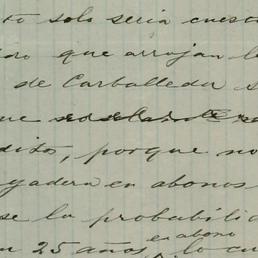 to solo seria cuest
que arrojan l
de Carballeda s
ue
dito, porque no
gadera en abonos
se la probabilid
n 25 años, en abono lo cu